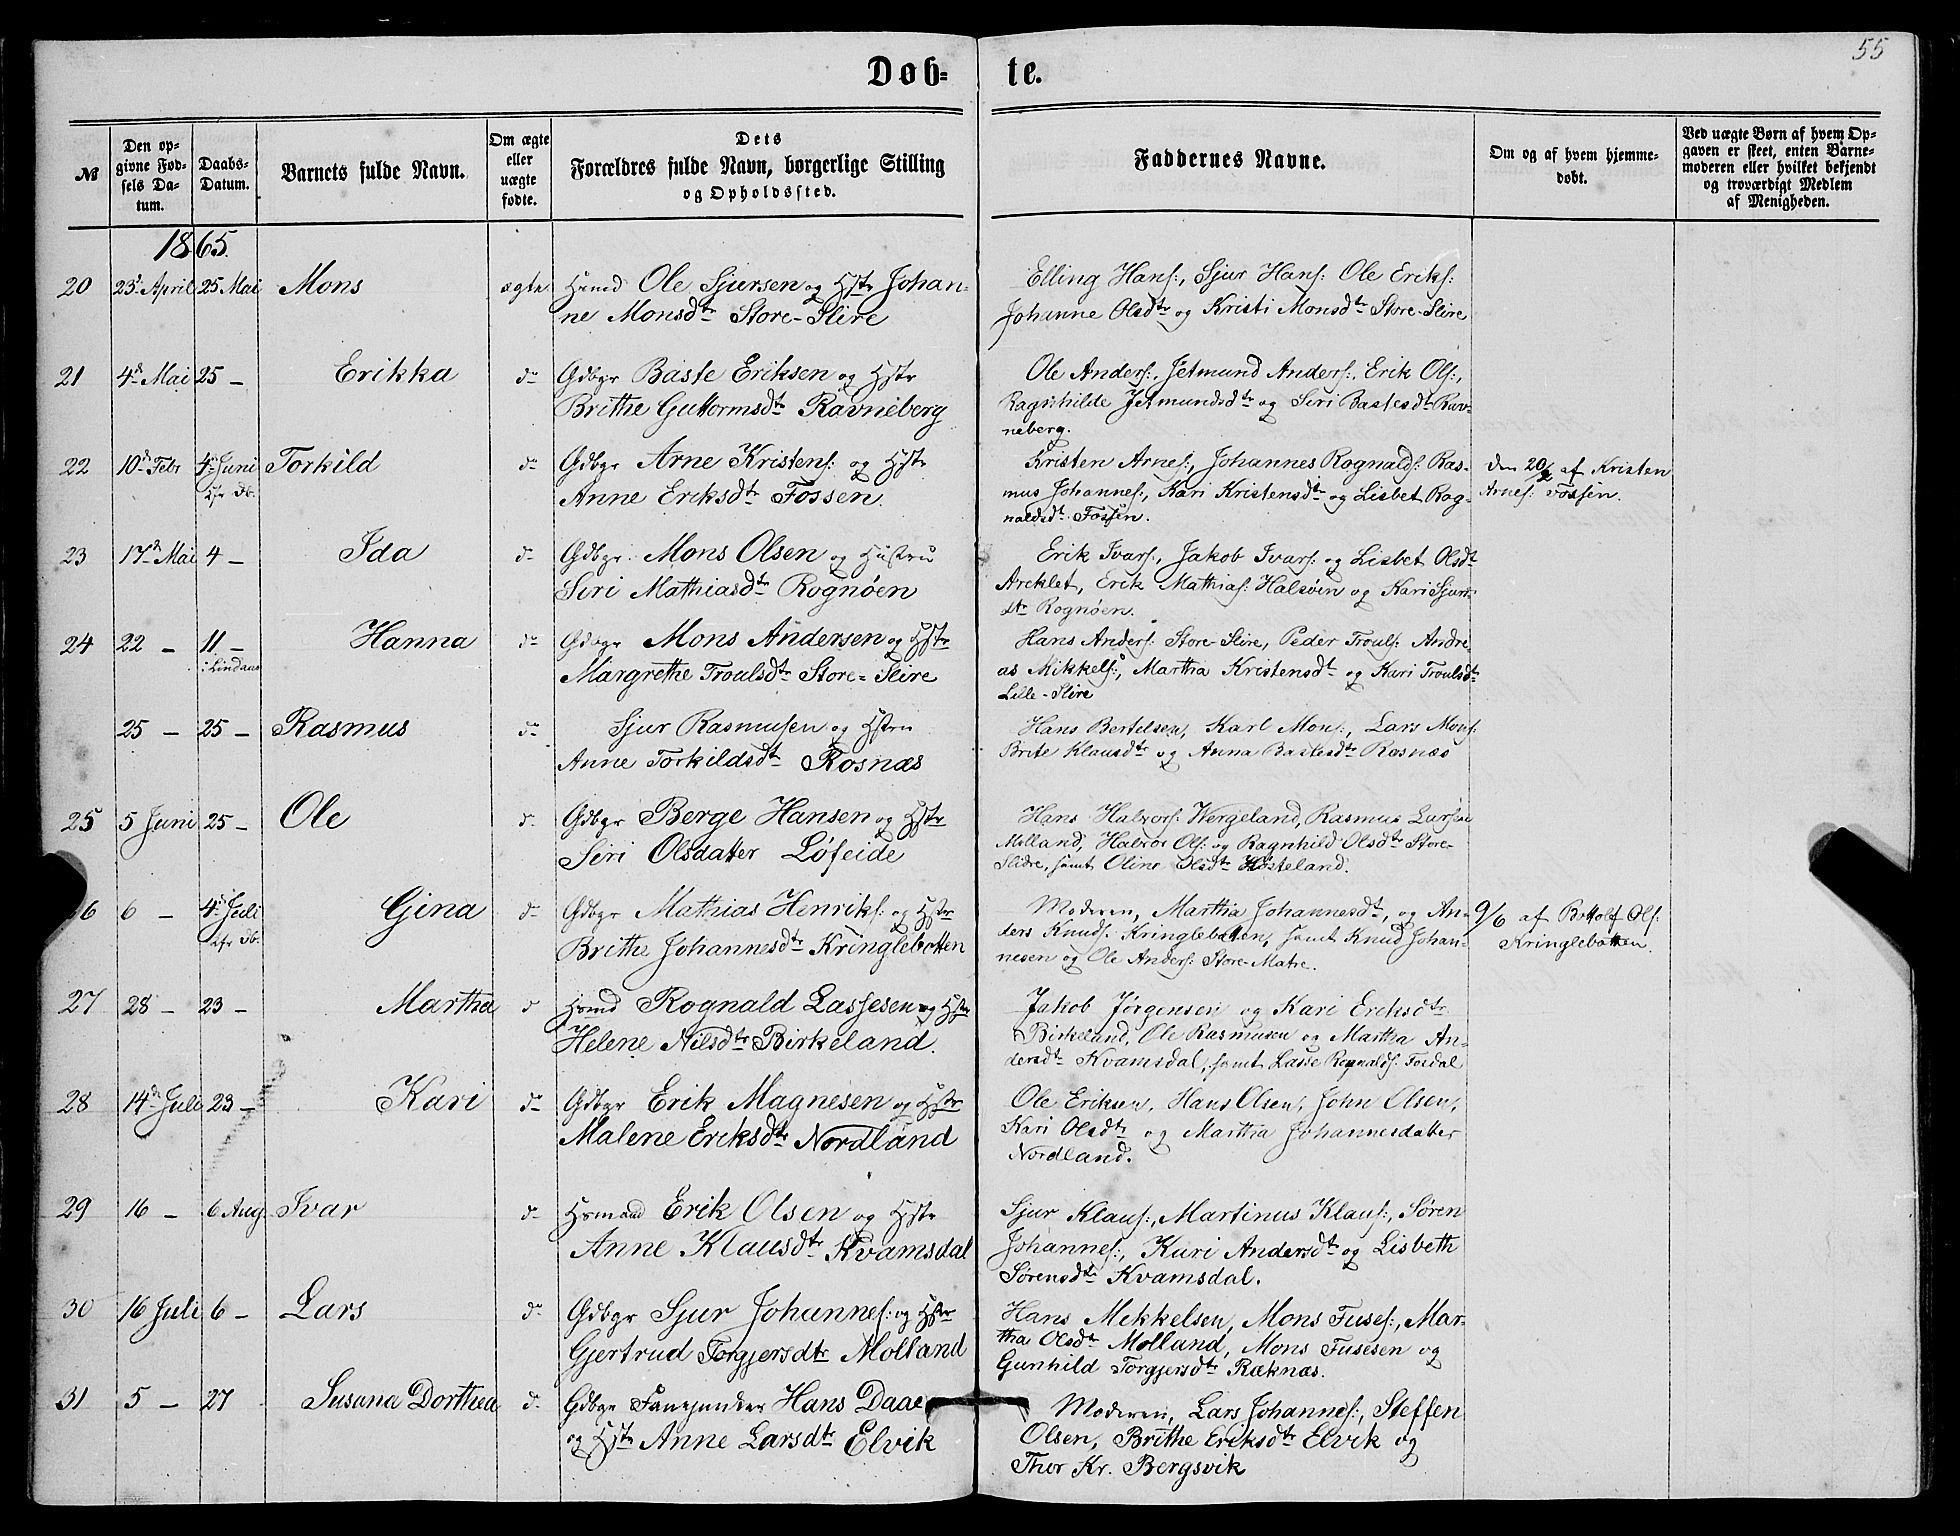 55
Døb- te.
№
Den opgivne Fødsels Datum.
Daabs-Datum.
Barnets fulde Navn.
Om ægte eller uægte fødte.
Dets Forældres fulde Navn, borgerlige Stilling og Opholdssted.
Faddernes Navne.
Om og af hvem hjemmedøbt.
Ved uægte Børn af hvem Opgaven er skeet, enten Barnemoderen eller hvilket bekjendt og troværdigt Medlem af Menigheden.
1865.
20 23d April 25 Mai Mons ægte Hsmd Ole Sjursen og Hstr Johan-
ne Monsdtr Store-Slire
Elling Hans:, Sjur Hans: Ole Eriks:
Johanne Olsdtr og Kristi Monsdtr Store-Slire
21 4d Mai 25 – Erikka do Gdbgr Baste Eriksen og Hstr
Brithe Guttormsdtr Ravneberg
Ole Anders:, Jetmund Anders:, Erik Ols:,
Ragnhilde Jetmundsdtr og Siri Bastesdtr Rav-
neberg.
22 10d Febr 4d Juni Torkild do Gdbgr Arne Kristens: og Hstr
Kfr Db.
Anne Eriksdtr Fossen.
Kristen Arnes:, Johannes Rognalds: Ras-
mus Johannes:, Kari Kristensdtr og Lisbet Rog-
naldsdtr Fossen.
den 20/2 af Kristen
Arnes: Fossen.
23 17d Mai 4 – Ida do Gdbgr. Mons Olsen og Hustru
Siri Mathiasdtr Rognøen
Erik Ivars:, Jakob Ivars: og Lisbet Olsdtr
Areklet, Erik Mathias: Halsøen og Kari Sjurs-
dtr Rognøen.
24 22 – 11 – Hanna do Gdbgr Mons Andersen og Hstr
i Lindaas
Margrethe Troulsdtr Store-Slire
Hans Anders: Store-Slire, Peder Trouls: Andre-
as Mikkels:, Martha Kristensdtr og Kari Troulsdtr
Lille-Slire
25 – 25 – Rasmus do Sjur Rasmusen og Hstru
Anne Torkildsdtr Rosnæs
Hans Bertelsen, Karl Mons:, Lars Mons:
Brite Klausdtr og Anna Bastesdtr Rosnæs
25 5 Juni 25 – Ole do Gdbgr Berge Hansen og Hstr
Siri Olsdatter Løfeide
Hans Halvors: Wergeland, Rasmus Larsen
Molland, Halvor Ols: og Ragnhild Olsdtr Store-
Slidre, samt Oline Olsdtr Høsteland.
6 6 – 4d Juli Gina do Gdbgr Mathias Henriks: og Hstr
Kfr Db.
Brithe Johannesdtr Kringlebotten
Moderen, Martha Johannesdtr, og An-
ders Knuds: Kringlebotten, samt Knud Johan-
nesen og Ole Anders: Store-Matre.
9/6 af Bottolf Ols:
Kringlebotten.
27 28 – 23 – Martha do Hsmd Rognald Lassesen og Hstr
Helene Nilsdtr Birkeland.
Jakob Jørgensen og Kari Eriksdtr
Birkeland, Ole Rasmusen og Martha An-
dersdtr Kvamsdal, samt Lasse Rognalds: Fosdal
28 14d Juli 23 – Kari do Gdbgr Erik Magnesen og Hstr
Malene Eriksdtr Nordland
Ole Eriksen, Hans Olsen, John Olsen,
Kari Olsdtr og Martha Johannesdatter
Nordland.
29 16 – 6 Aug Ivar do Hsmand Erik Olsen og Hstr
Anne Klausdtr Kvamsdal
Sjur Klaus:, Martinus Klaus:, Søren
Johannes:, Kari Andersdtr og Lisbeth
Sørensdtr Kvamsdal.
30 16 Juli 6 – Lars do Gdbgr Sjur Johannes: og Hstr
Gjertrud Torgjersdtr Molland
Hans Mikkelsen, Mons Fuses:, Mar-
tha Olsdtr Molland, Mons Fusesen og
Gunhild Torgjersdtr Ræknæs.
31 5 – 27 Susana Dorthea do Gdbgr Fanejunker Hans Daae
og Hstr Anne Larsdtr Elvik
Moderen, Lars Johannes:, Steffen
Olsen, Brithe Eriksdtr Elvik og
Thor Kr. Bergsvik